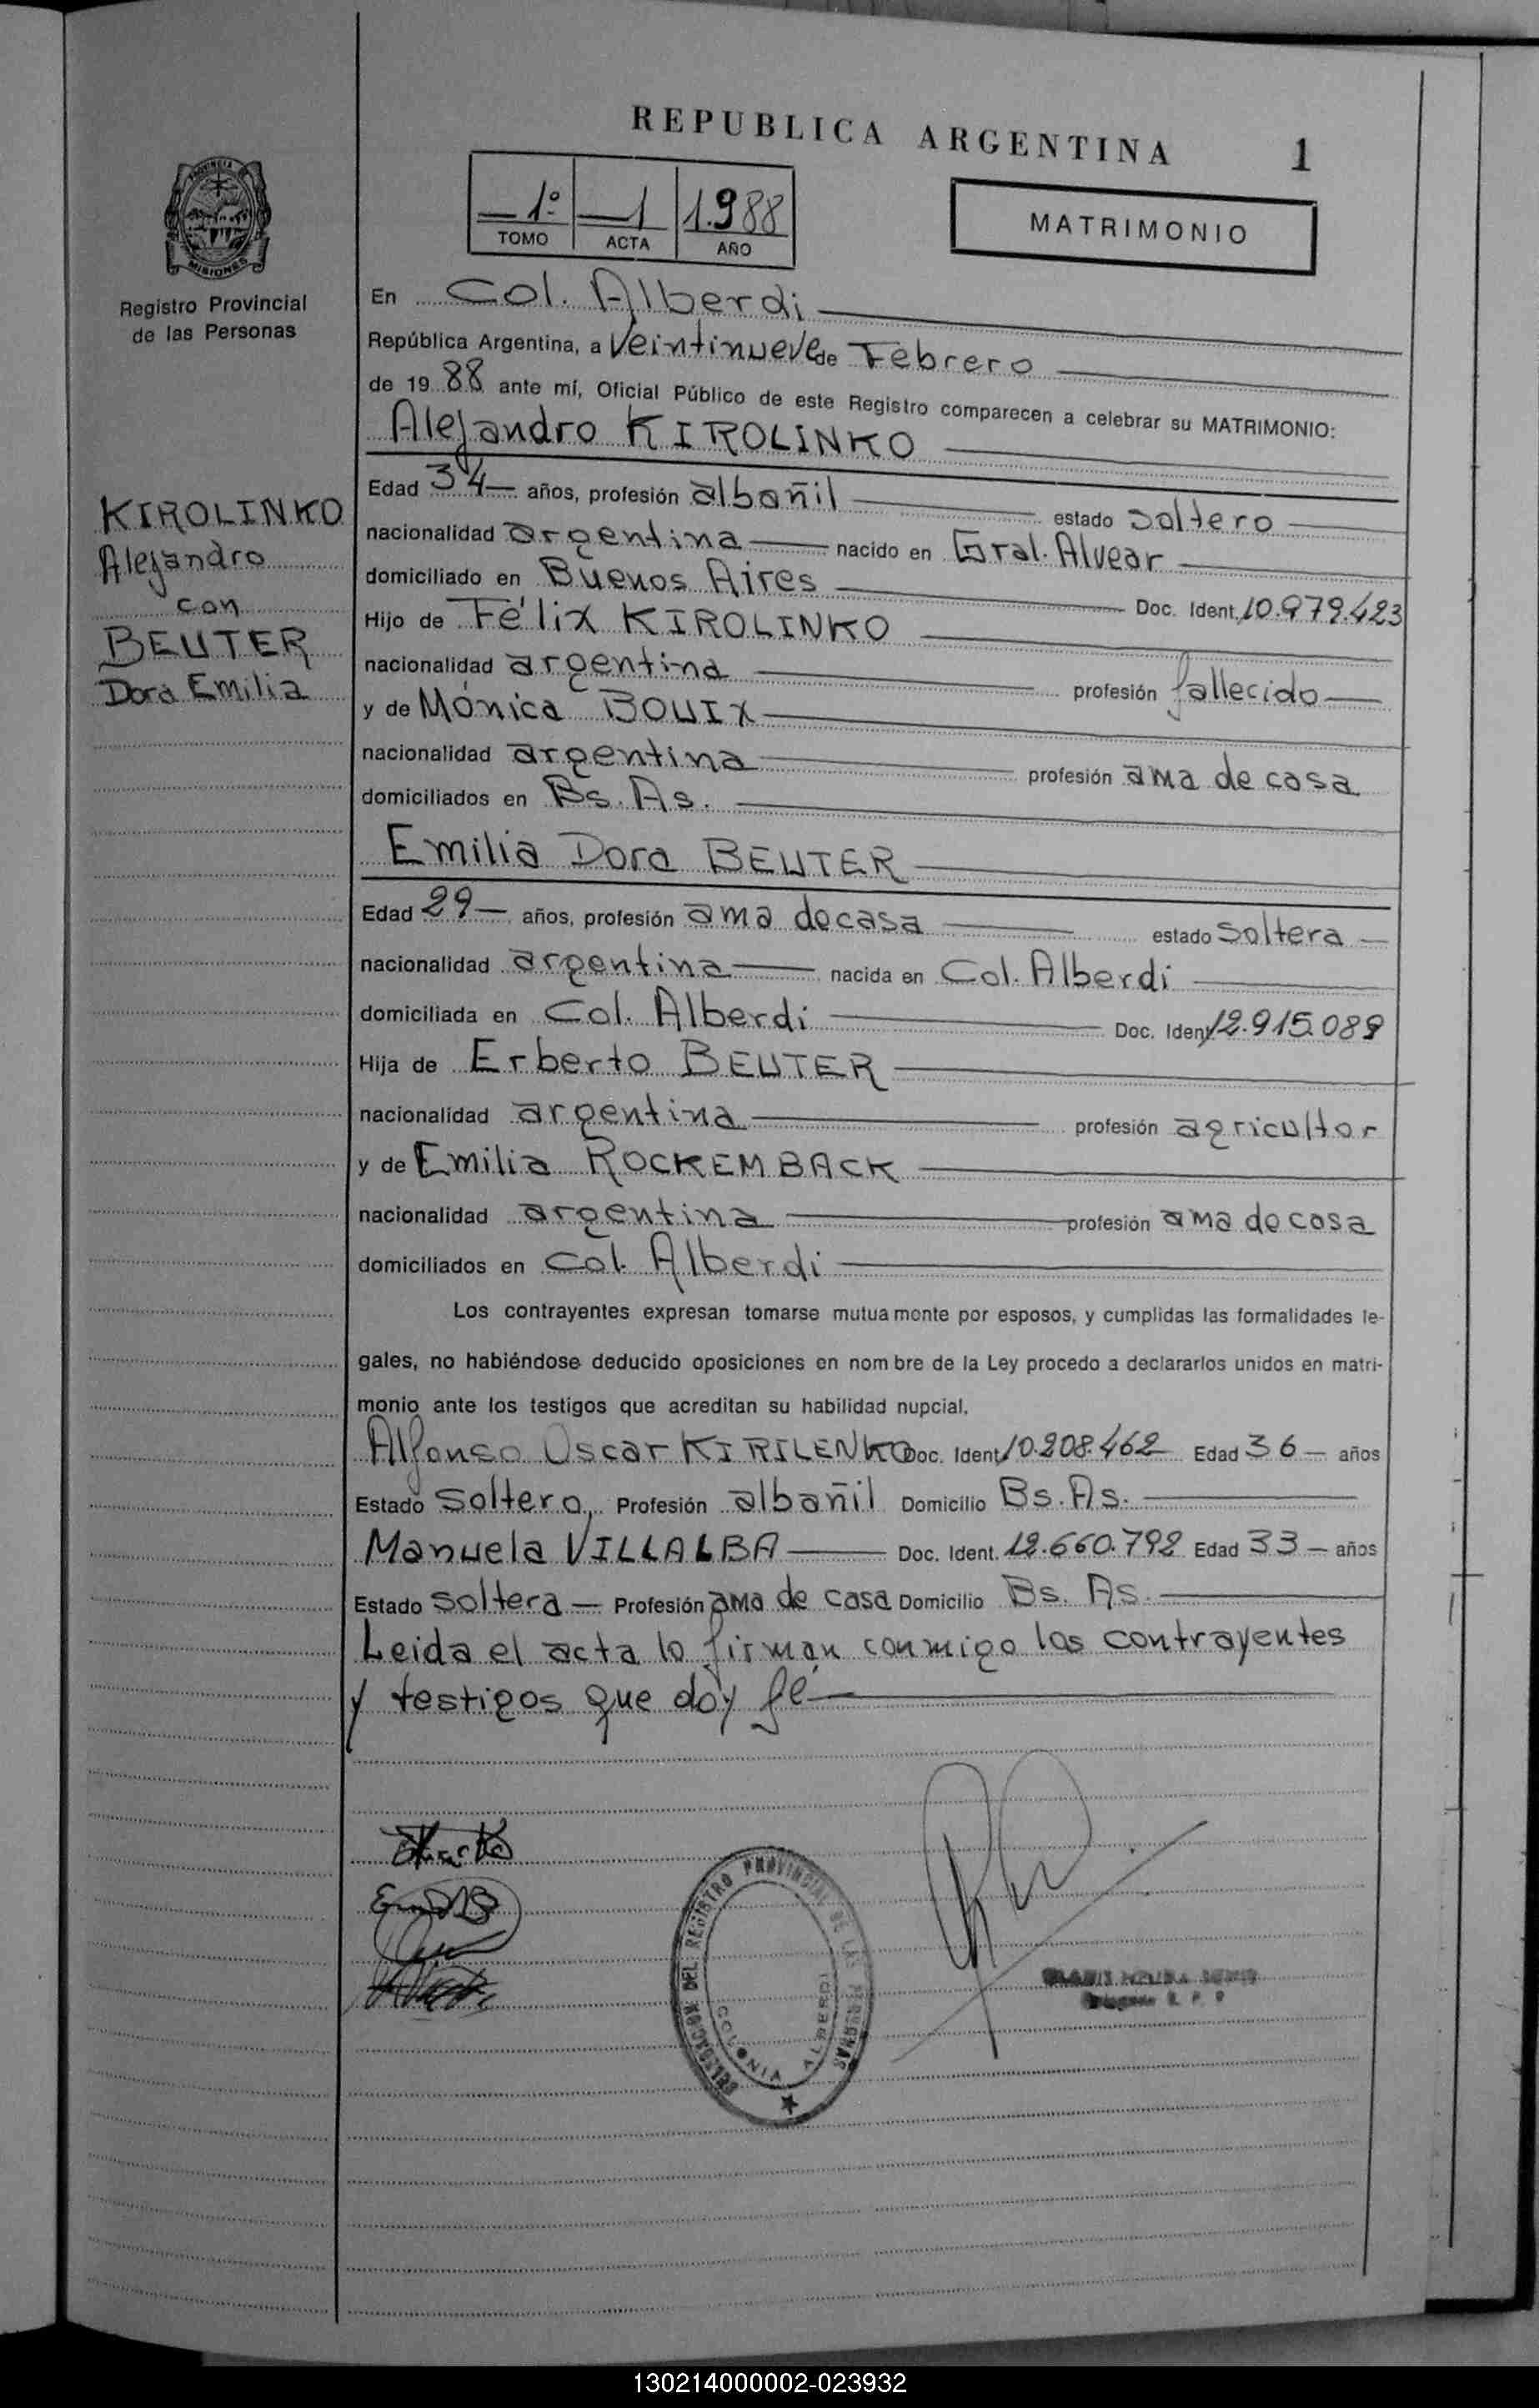 REPUBLICA ARGENTINA 1
1º 1 1.988
TOMO ACTA AÑO
MATRIMONIO
PROVINCIA
MISIONES
Registro Provincial
de las Personas
KIROLINKO
Alejandro
con
BEUTER
Dora Emilia
En Col. Alberdi
República Argentina, a Veintinueve de Febrero
de 19 88 ante mí, Oficial Público de este Registro comparecen a celebrar su MATRIMONIO:
Alejandro KIROLINKO
Edad 34 años, profesión albañil estado soltero
nacionalidad argentina nacido en Gral. Alvear
domiciliado en Buenos Aires Doc. Ident. 10.979.423
Hijo de Félix KIROLINKO
nacionalidad argentina profesión fallecido
y de Mónica BOUIX
nacionalidad argentina profesión ama de casa
domiciliados en Bs. As.
Emilia Dora BEUTER
Edad 29 años, profesión ama de casa estado soltera
nacionalidad argentina nacida en Col. Alberdi
domiciliada en Col. Alberdi Doc. Ident 12.915.089
Hija de Erberto BEUTER
nacionalidad argentina profesión agricultor
y de Emilia ROCKEMBACK
nacionalidad argentina profesión ama de casa
domiciliados en Col. Alberdi
Los contrayentes expresan tomarse mutua mente por esposos, y cumplidas las formalidades le-
gales, no habiéndose deducido oposiciones en nom bre de la Ley procedo a declararlos unidos en matri-
monio ante los testigos que acreditan su habilidad nupcial.
Alfonso Oscar KIRILENKO Doc. Ident. 10.208.462 Edad 36 años
Estado soltero Profesión albañil Domicilio Bs. As.
Manuela VILLALBA Doc. Ident. 12.660.792 Edad 33 años
Estado soltera Profesión ama de casa Domicilio Bs. As.
Leida el acta lo firman conmigo los contrayentes
y testigos que doy fé
DELEGACION DEL REGISTRO PROVINCIAL DE LAS PERSONAS
COLONIA ALBERDI
130214000002-023932